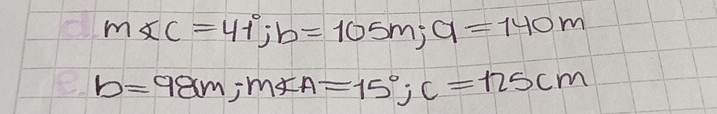 d. m∢C = 41°; b = 105m; a = 140m
e. b = 98m; m∢A = 15°; c = 125cm